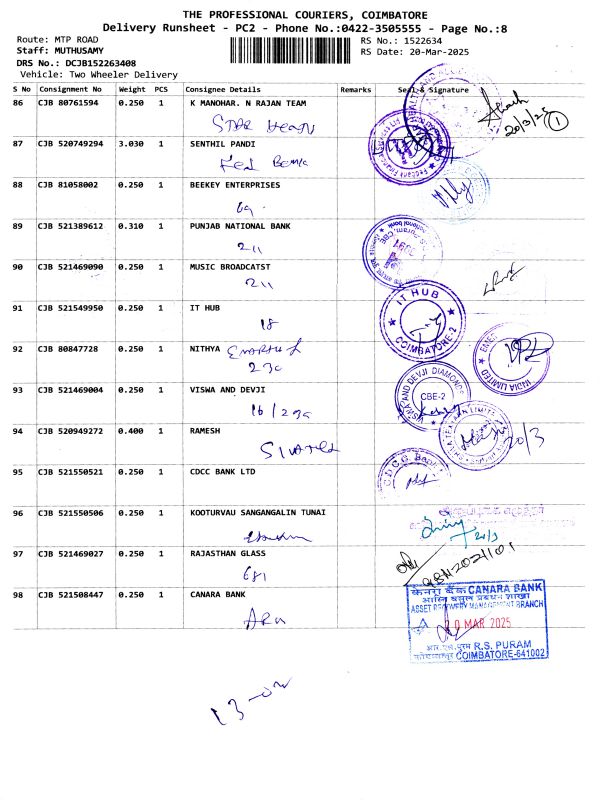 THE PROFESSIONAL COURIERS, COIMBATORE
Delivery Runsheet - PC2 - Phone No.:0422-3505555 - Page No.:8
Route: MTP ROAD
RS No.: 1522634
Staff: MUTHUSAMY
RS Date: 20-Mar-2025
DRS No.: DCJB152263408
Vehicle: Two Wheeler Delivery
S No Consignment No Weight PCS Consignee Details Remarks Seal & Signature
86 CJB 80761594 0.250 1 K MANOHAR. N RAJAN TEAM
20/3/25 1
87 CJB 520749294 3.030 1 SENTHIL PANDI
88 CJB 81058002 0.250 1 BEEKEY ENTERPRISES
69
89 CJB 521389612 0.310 1 PUNJAB NATIONAL BANK
211
90 CJB 521469090 0.250 1 MUSIC BROADCATST
211
91 CJB 521549950 0.250 1 IT HUB
18
IT HUB
COIMBATORE-2
92 CJB 80847728 0.250 1 NITHYA
230
INDIA LIMITED
93 CJB 521469004 0.250 1 VISWA AND DEVJI
16/230
VISWA AND DEVJI DIAMONDS
CBE-2
94 CJB 520949272 0.400 1 RAMESH
20/3
95 CJB 521550521 0.250 1 CDCC BANK LTD
C D C C. Bank
96 CJB 521550506 0.250 1 KOOTURVAU SANGANGALIN TUNAI
20/3
97 CJB 521469027 0.250 1 RAJASTHAN GLASS
681
98 CJB 521508447 0.250 1 CANARA BANK
केनरा बैंक CANARA BANK
ASSET RECOVERY MANAGEMENT BRANCH
20 MAR 2025
आर.एस.पुरम R.S. PURAM
कोयम्बत्तूर COIMBATORE-641002